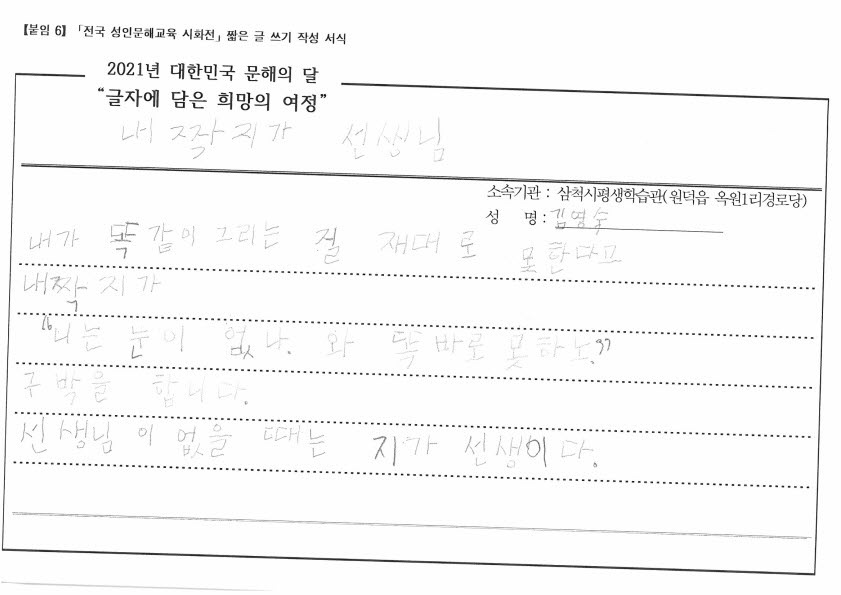 【붙임 6】 「전국 성인문해교육 시화전」 짧은 글 쓰기 작성 서식
2021년 대한민국 문해의 달
“글자에 담은 희망의 여정”
내 짝지가 선생님
소속기관 : 삼척시평생학습관(원덕읍 옥원1리경로당)
성 명 : 김영숙
내가 똑같이 그리는 걸 재대로 못한다고
내짝지가
"니는 눈이 없나. 와 똑바로 못하노."
구박을 합니다.
선생님이 없을 때는 지가 선생이다.